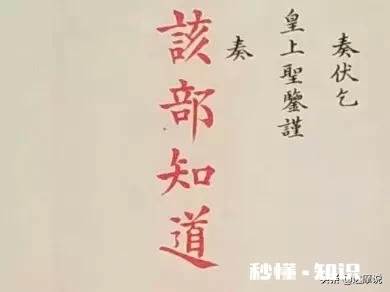 奏伏乞
皇上聖鑒謹
奏
該部知道
秒懂·知识
头条@达摩说